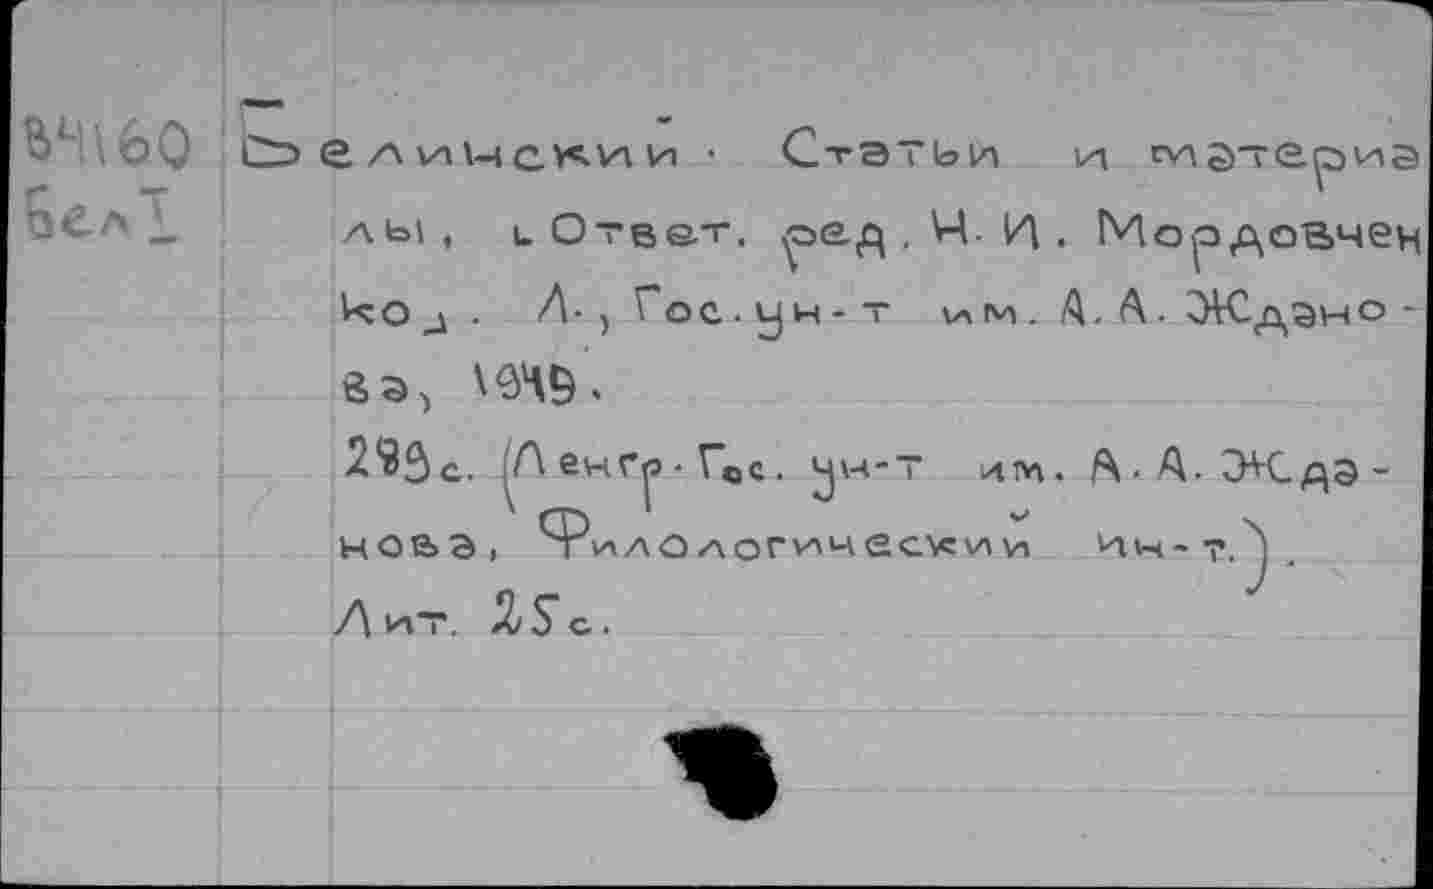 В4160 Белинский. Статьи и материа
БелI лы, ιОтвет. ред. Н. И. Мордовчен
коj. Л., Гос. ун-т им. А. А. Ждано-
ва, 1949.
293с. (Ленгр. Гос. ун-т им. А. А. Жда-
нова, Филологический ин-т.).
Лит. 25с.